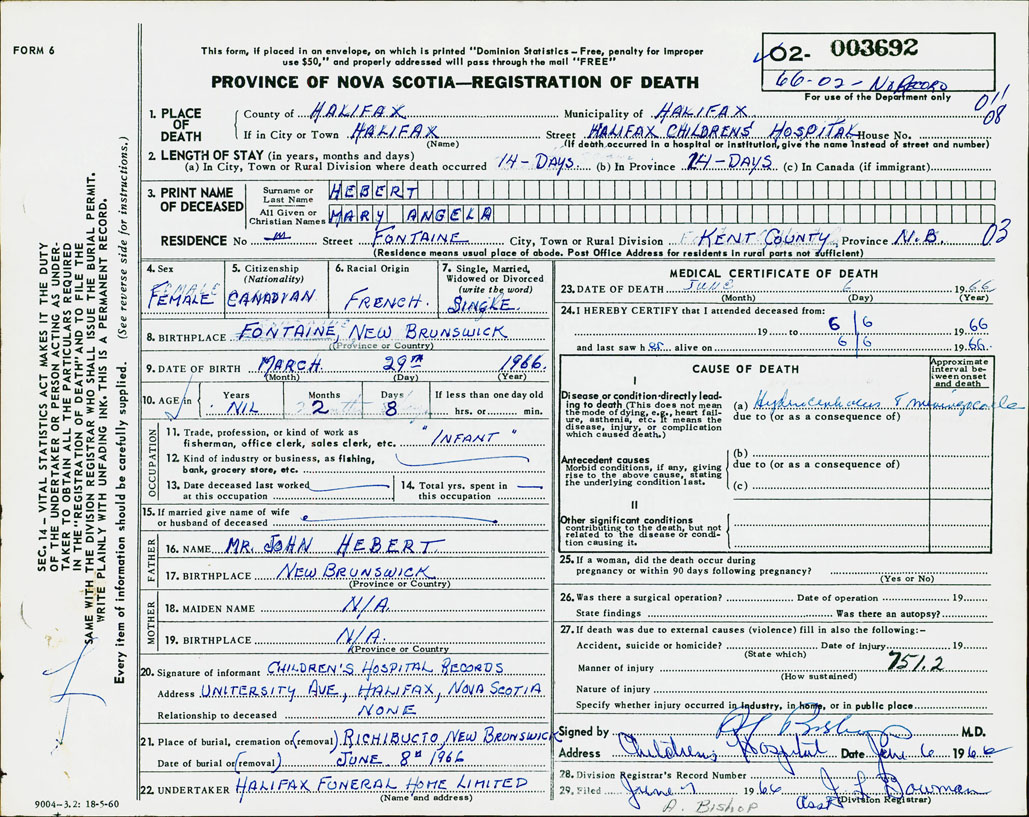 FORM 6
This form, if placed in an envelope, on which is printed "Dominion Statistics – Free, penalty for improper
use $50," and properly addressed will pass through the mail "FREE"
PROVINCE OF NOVA SCOTIA—REGISTRATION OF DEATH
02- 003692
66-02 - No Record
For use of the Department only
011
08
1. PLACE OF DEATH
County of HALIFAX Municipality of HALIFAX
If in City or Town HALIFAX Street HALIFAX CHILDRENS' HOSPITAL House No.
(Name) (If death occurred in a hospital or institution, give the name instead of street and number)
2. LENGTH OF STAY (in years, months and days)
(a) In City, Town or Rural Division where death occurred 14-DAYS (b) In Province 14-DAYS (c) In Canada (if immigrant)
3. PRINT NAME OF DECEASED
Surname or Last Name HEBERT
All Given or Christian Names MARY ANGELA
RESIDENCE No Street FONTAINE City, Town or Rural Division KENT COUNTY Province N.B. 03
(Residence means usual place of abode. Post Office Address for residents in rural parts not sufficient)
4. Sex FEMALE
5. Citizenship (Nationality) CANADIAN
6. Racial Origin FRENCH.
7. Single, Married, Widowed or Divorced (write the word) SINGLE.
8. BIRTHPLACE FONTAINE, NEW BRUNSWICK
(Province or Country)
9. DATE OF BIRTH MARCH. 29TH 1966.
(Month) (Day) (Year)
10. AGE in Years NIL Months 2 Days 8 If less than one day old hrs. or min.
OCCUPATION
11. Trade, profession, or kind of work as
fisherman, office clerk, sales clerk, etc. "INFANT"
12. Kind of industry or business, as fishing,
bank, grocery store, etc.
13. Date deceased last worked at this occupation
14. Total yrs. spent in this occupation
15. If married give name of wife
or husband of deceased
FATHER
16. NAME MR. JOHN HEBERT
17. BIRTHPLACE NEW BRUNSWICK
(Province or Country)
MOTHER
18. MAIDEN NAME N/A.
19. BIRTHPLACE N/A.
(Province or Country)
20. Signature of informant CHILDREN'S HOSPITAL RECORDS
Address UNITERSITY AVE, HALIFAX, NOVA SCOTIA
Relationship to deceased NONE
21. Place of burial, cremation or (removal) RICHIBUCTO NEW BRUNSWICK
Date of burial or (removal) JUNE 8th 1966
22. UNDERTAKER HALIFAX FUNERAL HOME LIMITED
(Name and address)
9004—3.2: 18-5-60
MEDICAL CERTIFICATE OF DEATH
23. DATE OF DEATH JUNE 6 1966
(Month) (Day) (Year)
24. I HEREBY CERTIFY that I attended deceased from:
19 to 6 6 1966
and last saw her alive on 6 6 1966.
CAUSE OF DEATH
Approximate interval between onset and death
I
Disease or condition directly leading to death (This does not mean the mode of dying, e.g., heart failure, asthenia, etc. It means the disease, injury, or complication which caused death.)
(a) Hydrocephalus & meningocoele
due to (or as a consequence of)
Antecedent causes
Morbid conditions, if any, giving rise to the above cause, stating the underlying condition last.
(b)
due to (or as a consequence of)
(c)
II
Other significant conditions
contributing to the death, but not related to the disease or condition causing it.
25. If a woman, did the death occur during
pregnancy or within 90 days following pregnancy?
(Yes or No)
26. Was there a surgical operation? Date of operation 19
State findings Was there an autopsy?
27. If death was due to external causes (violence) fill in also the following:—
Accident, suicide or homicide? Date of injury 19
(State which)
751.2
Manner of injury
(How sustained)
Nature of injury
Specify whether injury occurred in industry, in home, or in public place
Signed by Bishop M.D.
Address Childrens Hospital Date June 6 1966
28. Division Registrar's Record Number
29. Filed June 7 1966 J. L. Bowman
Asst (Division Registrar)
A. Bishop
SEC. 14 – VITAL STATISTICS ACT MAKES IT THE DUTY
OF THE UNDERTAKER OR PERSON ACTING AS UNDER-
TAKER TO OBTAIN ALL THE PARTICULARS REQUIRED
IN THE "REGISTRATION OF DEATH" AND TO FILE THE
SAME WITH THE DIVISION REGISTRAR WHO SHALL ISSUE THE BURIAL PERMIT.
WRITE PLAINLY WITH UNFADING INK. THIS IS A PERMANENT RECORD.
Every item of information should be carefully supplied. (See reverse side for instructions.)